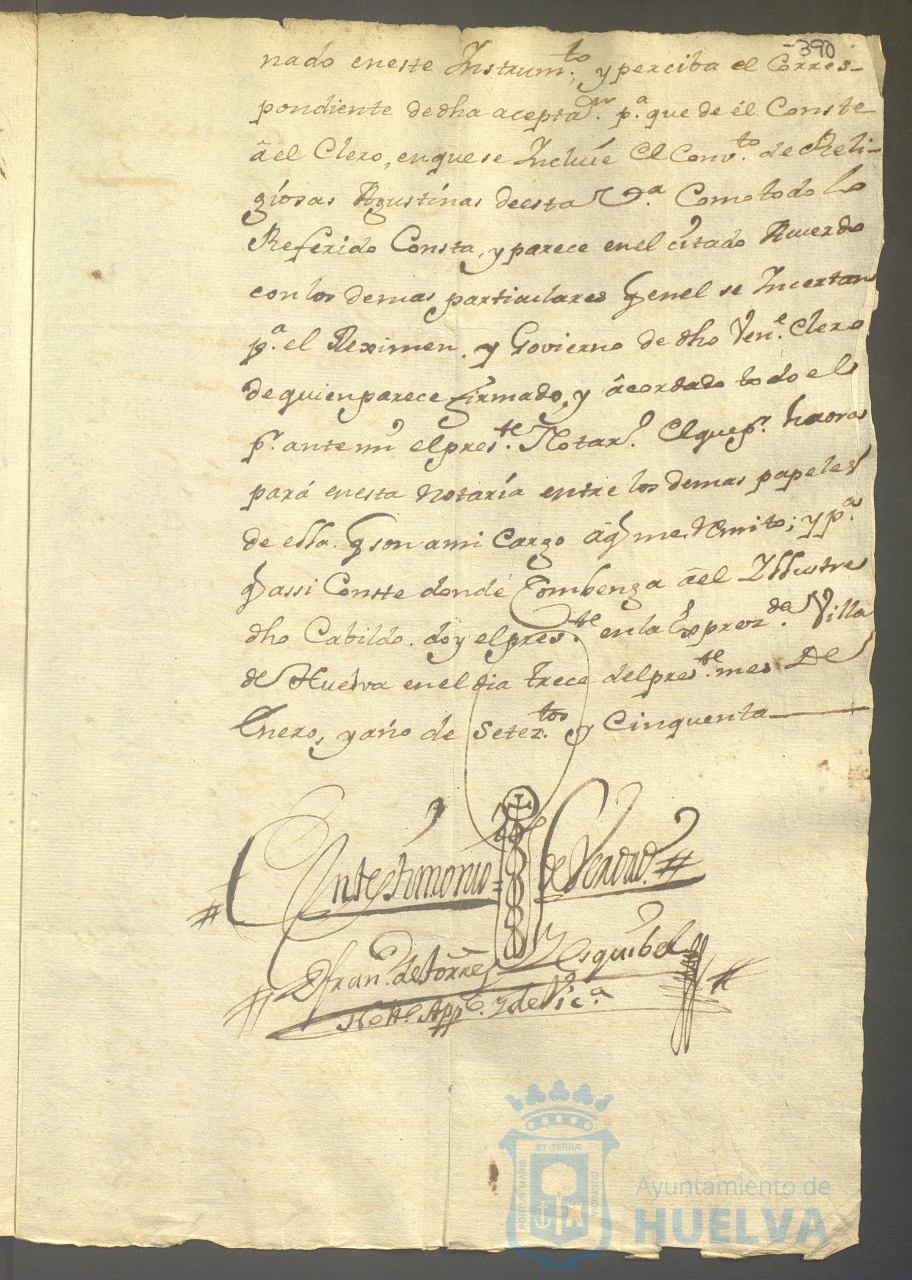 390
nado eneste Instrum.to, y perciba el Corres-
pondiente dedha acepta.on p.a que de él Conste
â el Clero, enque se Incluie el Conv.to de Reli-
giosas Agustinas deesta V.a Como todo lo
Referido Consta, y parece enel citado Acuerdo
con los demas particulares q enel se Incertan
p.a el Reximen. y Govierno de dho Ven.e Clero
de quien parece firmado, y âcordado todo ello
p.r ante mi el pres.te Notar.o El que p.r haora
pará enesta Notaría entre los demas papeles
de ella. q son a mi Cargo âq me Remito; y p.a
q assi Conste donde Combenga âel Illustre
dho Cabildo. doy el pres.te en la Exprez.da Villa
de Huelva en el dia trece del pres.te mes De
Enero, y año de Setez.tos y Cinquenta
En testimonio = de Verdad.
D fran.co de torres Y esquibel
Nott.o App.co y de Vic.a
ET TERRÆ
PORTUS MARIS
CUSTODIA
Ayuntamiento de
HUELVA